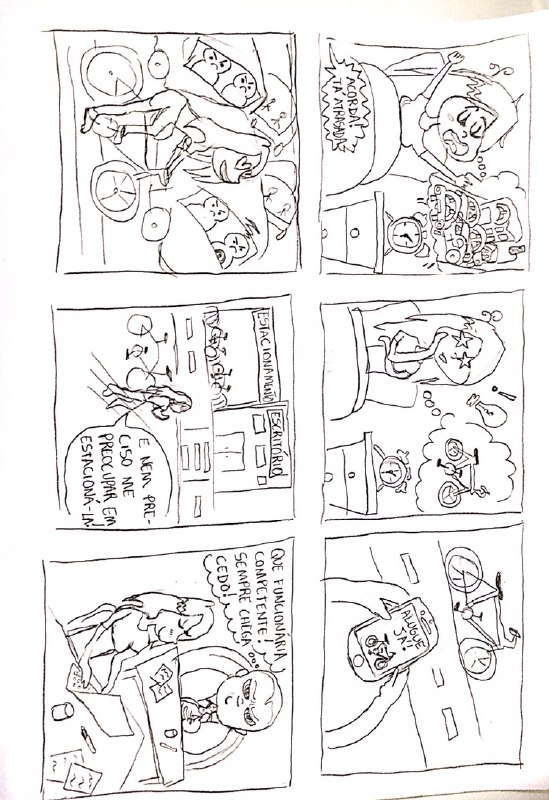 ACORDA!
TÁ ATRASADA
!
ALUGUE
JÁ!
ESTACIONAMENTO
ESCRITÓRIO
E NEM PRE-
CISO ME
PREOCUPAR EM
ESTACIONÁ-LA!
QUE FUNCIONÁRIA
COMPETENTE!
SEMPRE CHEGA
CEDO!